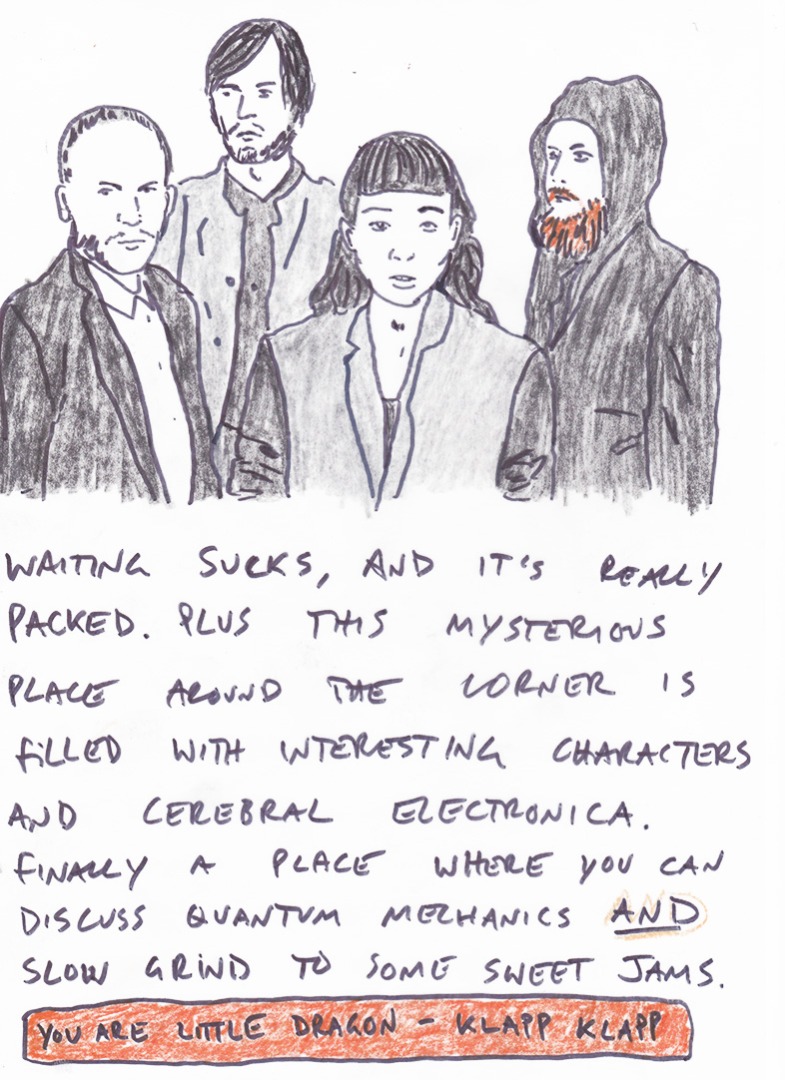 WAITING SUCKS, AND IT'S REALLY
PACKED. PLUS THIS MYSTERIOUS
PLACE AROUND THE CORNER IS
FILLED WITH INTERESTING CHARACTERS
AND CEREBRAL ELECTRONICA.
FINALLY A PLACE WHERE YOU CAN
DISCUSS QUANTUM MECHANICS AND
SLOW GRIND TO SOME SWEET JAMS.
YOU ARE LITTLE DRAGON - KLAPP KLAPP